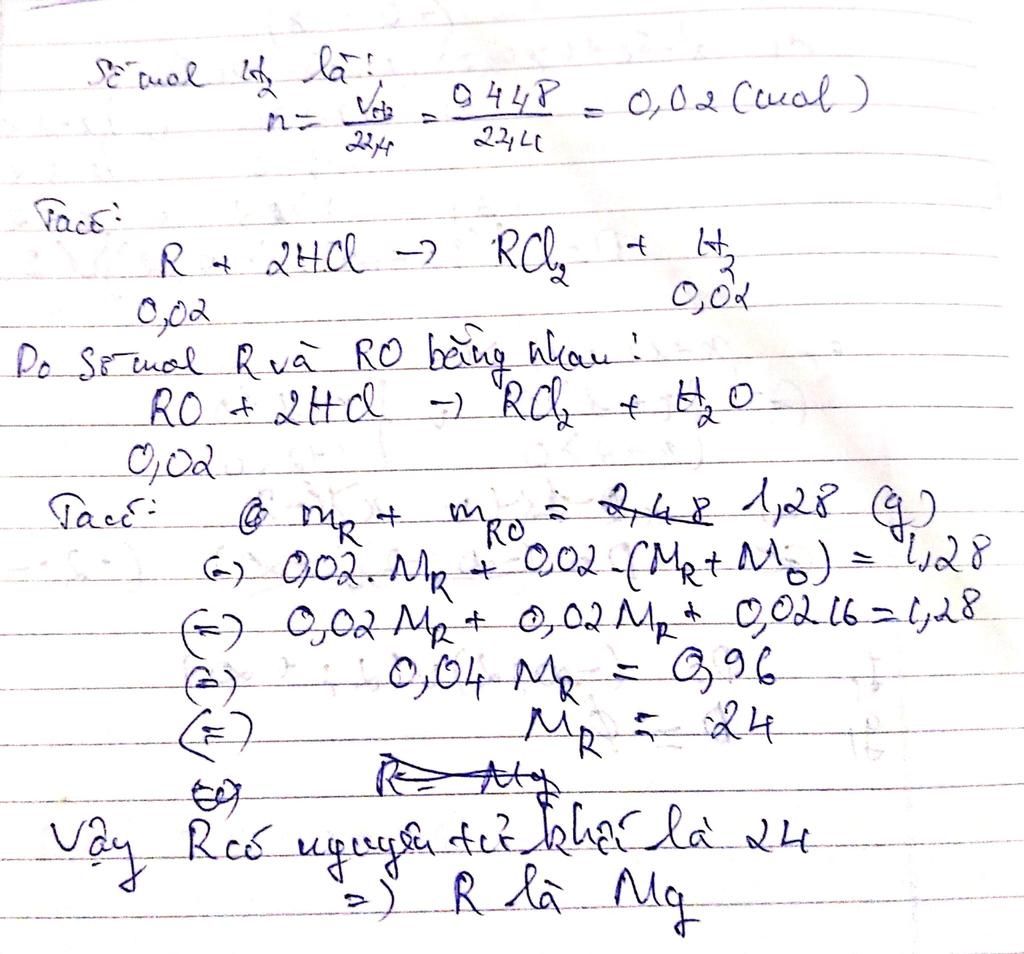 Số mol H₂ là:
n = V_H₂/22,4 = 0,448/22,4 = 0,02 (mol)
Ta có:
R + 2HCl → RCl₂ + H₂
0,02 0,02
Do số mol R và RO bằng nhau:
RO + 2HCl → RCl₂ + H₂O
0,02
Ta có: m_R + m_RO = 2,48 1,28 (g)
(=) 0,02. M_R + 0,02.(M_R + M_O) = 1,28
(=) 0,02 M_R + 0,02 M_R + 0,02 16 = 1,28
(=) 0,04 M_R = 0,96
(=) M_R = 24
R = Mg
Vậy R có nguyên tử khối là 24
=) R là Mg